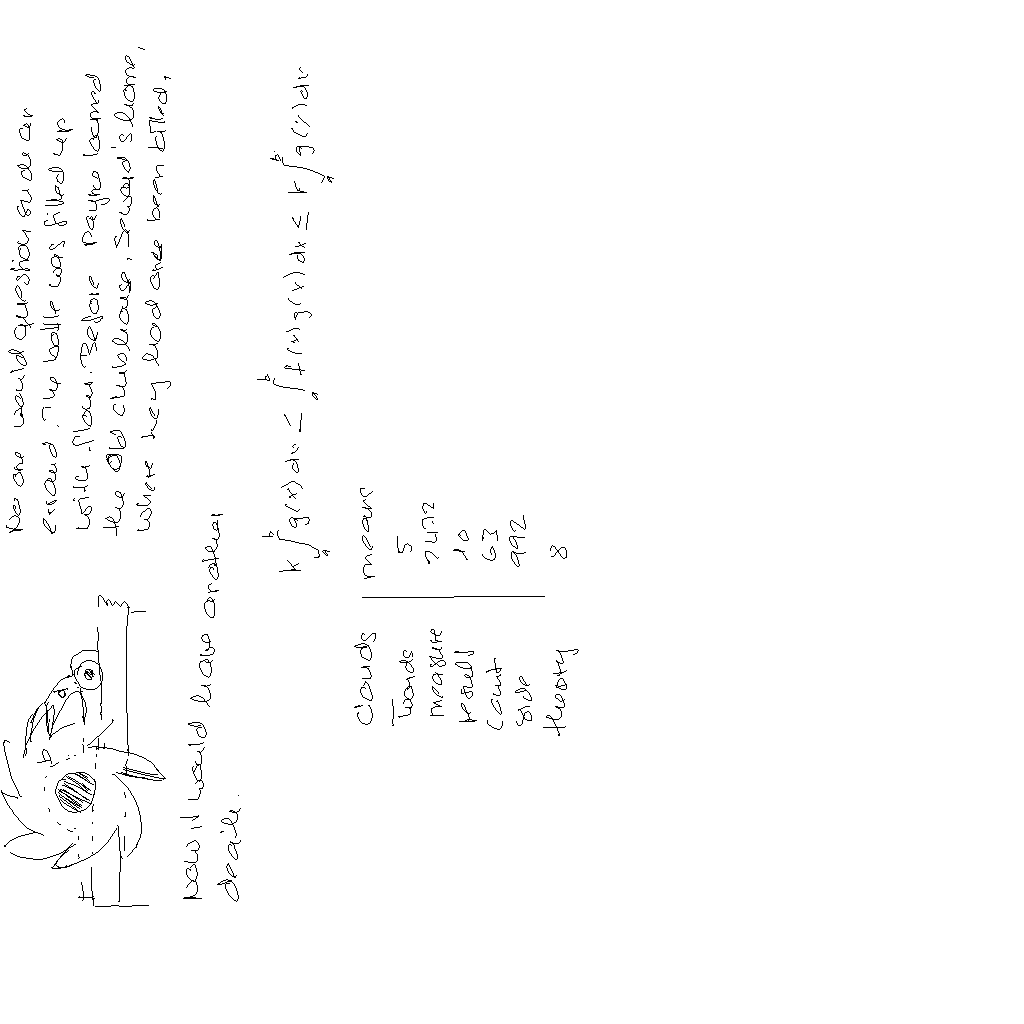 No one would question such an
errand. The bottle was filled up
with flour. Before Payne banned
the old clubhouse, Seward's home,
where they had once been billed,
Now it would have another
decaile.
k∫_a^b g(x)dx ≤ ∫_a^b f(x)g(x)dx ≤ k∫_a^b g(x)dx
Clouds means
words 5
measure 7472
result 10
count 63
side 992
theory 8